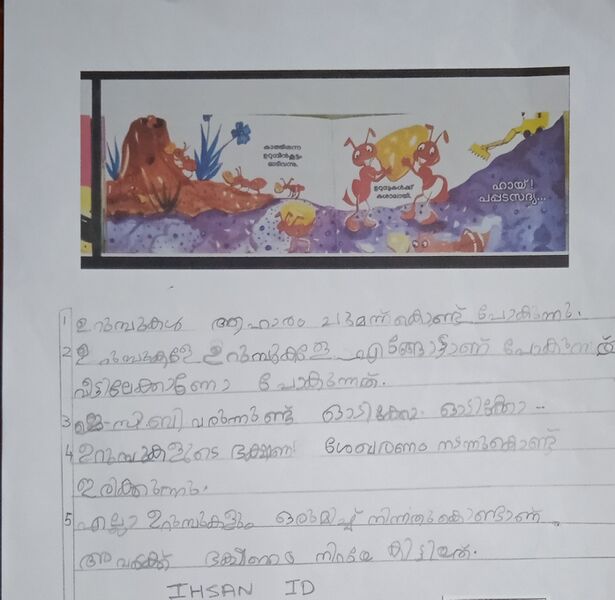 കാത്തിരുന്ന
ഉറുമ്പിൻകൂട്ടം
ഓടിവന്നു.
ഉറുമ്പുകൾക്ക്
കുശാലായി.
ഹായ്!
പപ്പടസദ്യ...
1 ഉറുമ്പുകൾ ആഹാരം ചുമന്ന്കൊണ്ട് പോകുന്നു.
2 ഉറുമ്പുകളേ ഉറുമ്പുകളേ എങ്ങോട്ടാണ് പോകുന്നത്
വീട്ടിലേക്കാണോ പോകുന്നത്.
3 ജെ-സി-ബി വരുന്നുണ്ട് ഓടിക്കോ ഓടിക്കോ --
4 ഉറുമ്പുകളുടെ ഭക്ഷണ ശേഖരണം നടന്നുകൊണ്ട്
ഇരിക്കുന്നു.
5 എല്ലാ ഉറുമ്പുകളും ഒരുമിച്ച് നിന്നതുകൊണ്ടാണ്
അവർക്ക് ഭക്ഷണം നിറയേ കിട്ടിയത്.
IHSAN ID